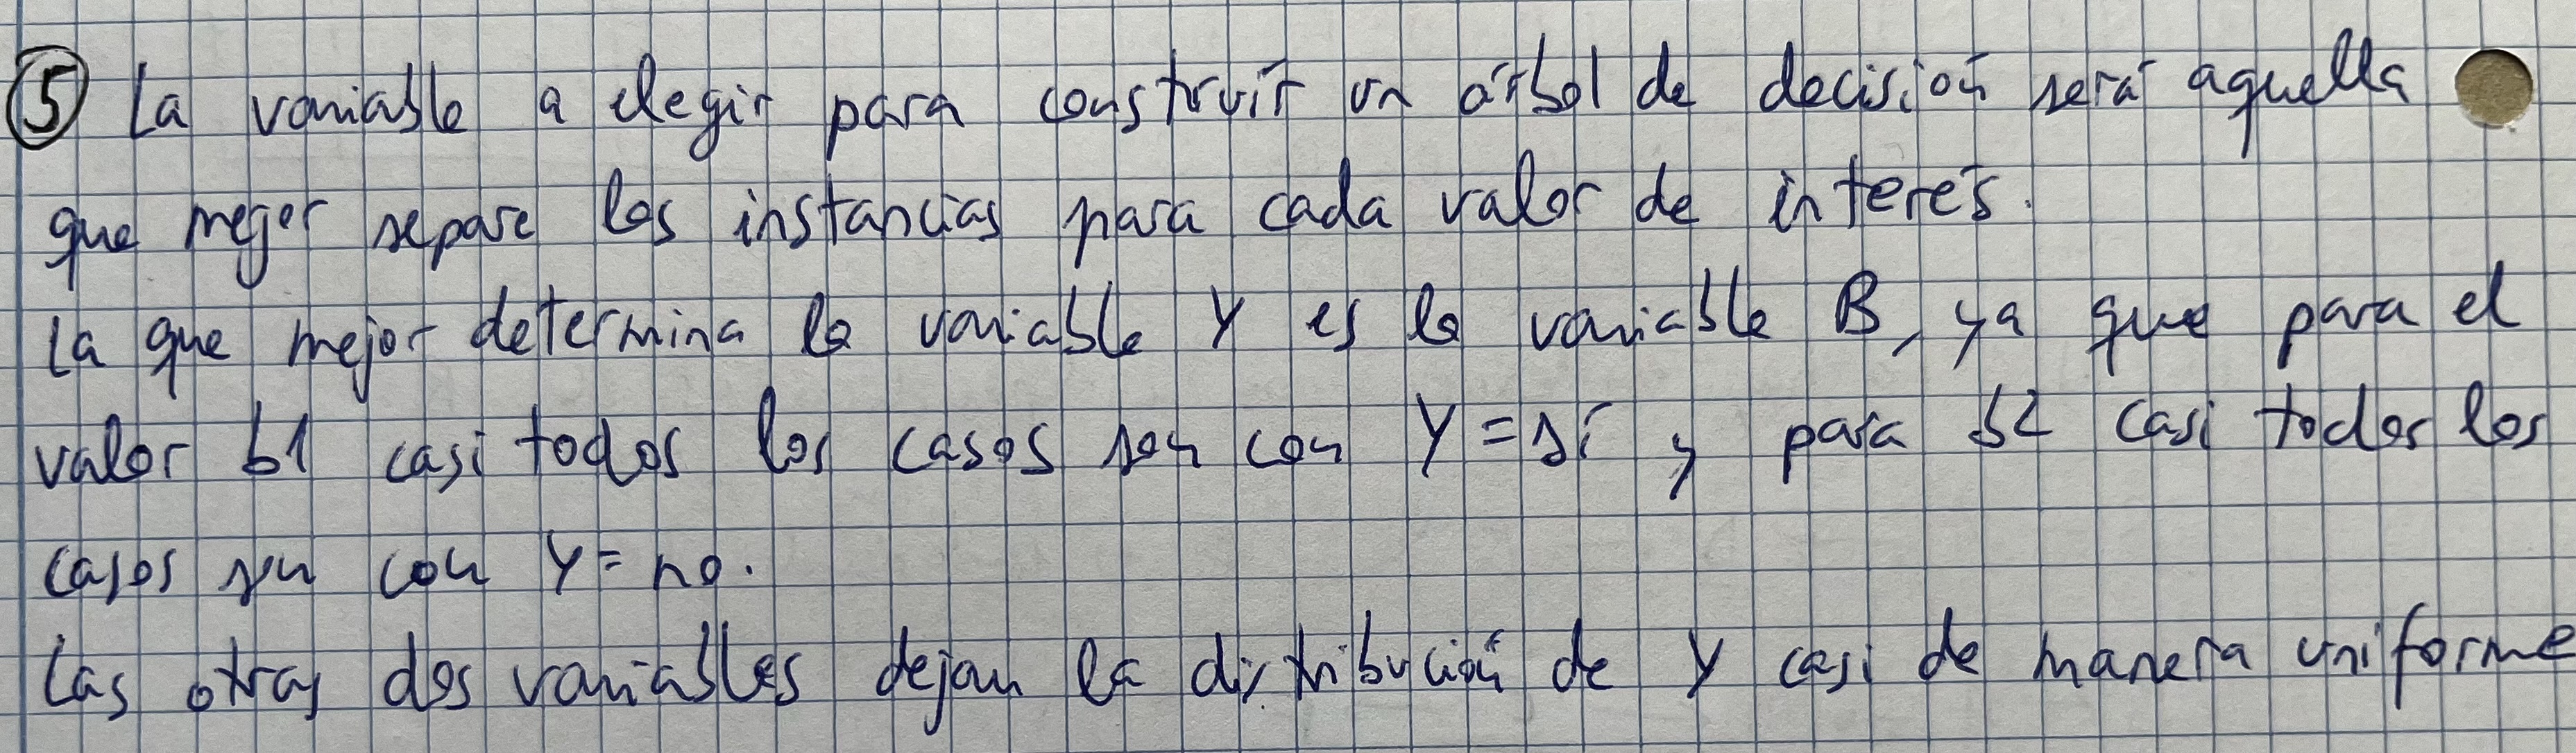 ⑤ La variable a elegir para construir un árbol de decisión será aquella
que mejor separe las instancias para cada valor de interés.
La que mejor determina la variable Y es la variable B, ya que para el
valor b1 casi todos los casos son con Y = sí y para b2 casi todos los
casos son con Y = no.
Las otras dos variables dejan la distribución de Y casi de manera uniforme